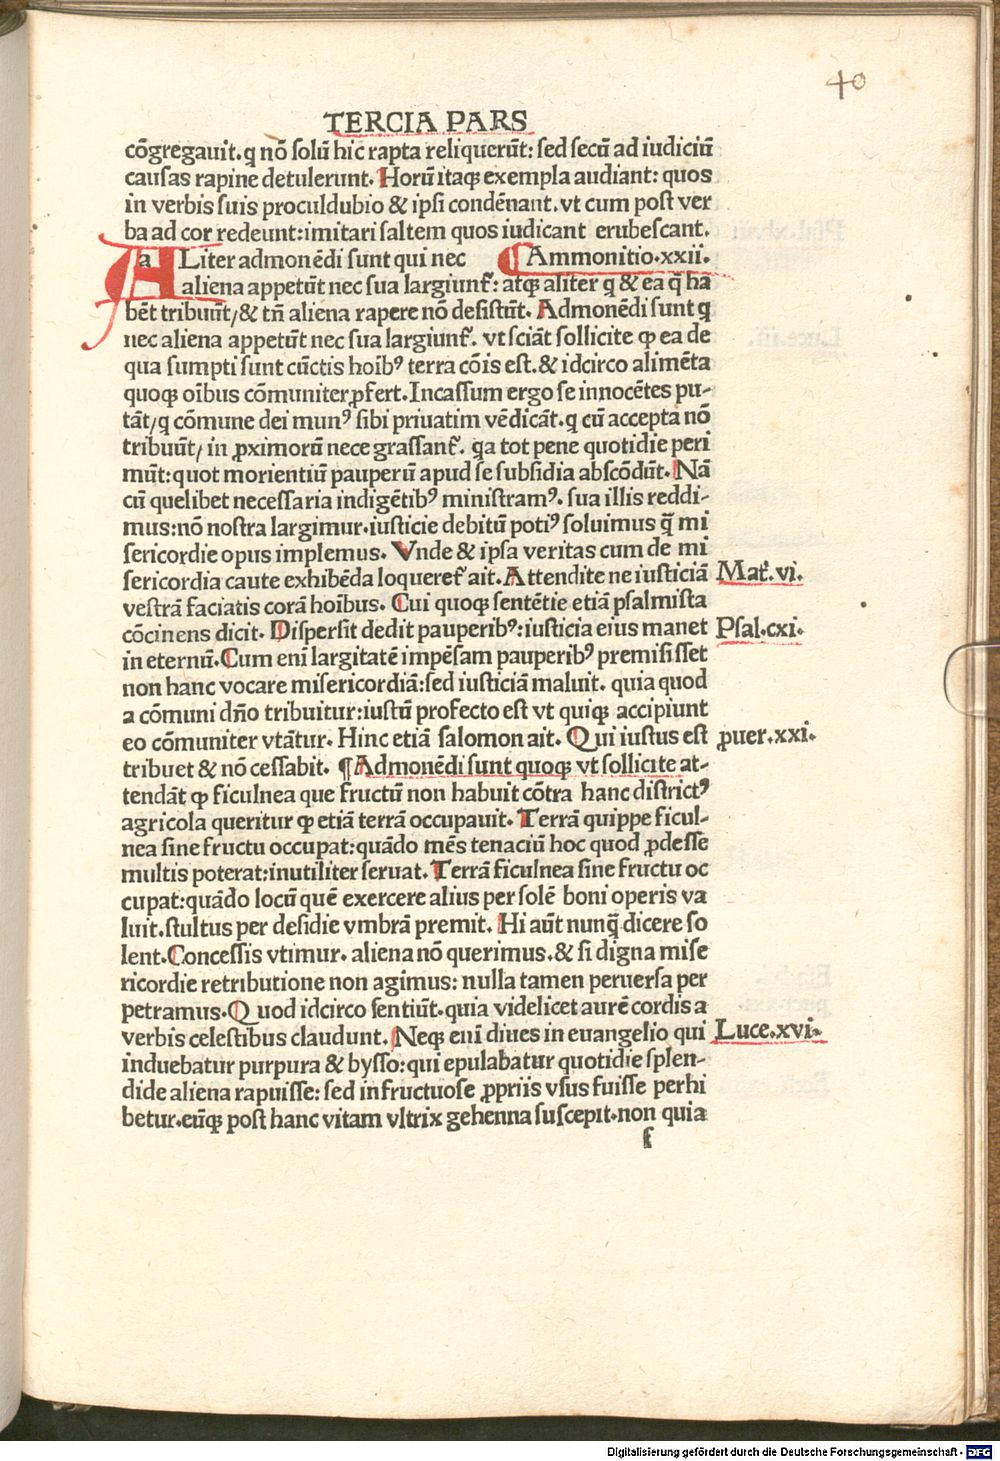 40
TERCIA PARS
cōgregauit. q nō solū hic rapta reliquerūt: sed secū ad iudiciū
causas rapine detulerunt. Horū itaqꝫ exempla audiant: quos
in verbis suis proculdubio & ipsi condēnant. vt cum post ver
ba ad cor redeunt: imitari saltem quos iudicant erubescant.
ALiter admonēdi sunt qui nec ¶ Ammonitio.xxii.
aliena appetūt nec sua largiunt᷑: atqꝫ aliter q & ea q̄ ha
bēt tribuūt/ & tn̄ aliena rapere nō desistūt. Admonēdi sunt q
nec aliena appetūt nec sua largiunt᷑. vt sciāt sollicite ꝙ ea de
qua sumpti sunt cūctis hoibꝰ terra cōis est. & idcirco alimēta
quoqꝫ oībus cōmuniter ꝓfert. Incassum ergo se innocētes pu-
tāt/ q cōmune dei munꝰ sibi priuatim vēdicāt. q cū accepta nō
tribuūt/ in ꝓximorū nece grassant᷑. qa tot pene quotidie peri
mūt: quot morientiū pauperū apud se subsidia abscōdūt. Nā
cū quelibet necessaria indigētibꝰ ministramꝰ. sua illis reddi-
mus: nō nostra largimur. iusticie debitū potiꝰ soluimus q̄ mi
sericordie opus implemus. Vnde & ipsa veritas cum de mi
sericordia caute exhibēda loqueret᷑ ait. Attendite ne iusticiā Mat᷑.vi.
vestrā faciatis corā hoībus. Cui quoqꝫ sentētie etiā psalmista
cōcinens dicit. Dispersit dedit pauperibꝰ: iusticia eius manet Psal.cxi.
in eternū. Cum enī largitatē impēsam pauperibꝰ premisisset
non hanc vocare misericordiā: sed iusticiā maluit. quia quod
a cōmuni dn̄o tribuitur: iustū profecto est vt quiqꝫ accipiunt
eo cōmuniter vtātur. Hinc etiā salomon ait. Qui iustus est ꝓuer.xxi.
tribuet & nō cessabit. ¶Admonēdi sunt quoqꝫ vt sollicite at-
tendāt ꝙ ficulnea que fructū non habuit cōtra hanc districtꝰ
agricola queritur ꝙ etiā terrā occupauit. Terrā quippe ficul-
nea sine fructu occupat: quādo mēs tenaciū hoc quod ꝓdesse
multis poterat: inutiliter seruat. Terrā ficulnea sine fructu oc
cupat: quādo locū quē exercere alius per solē boni operis va
luit. stultus per desidie vmbrā premit. Hi aūt nunq̄ dicere so
lent. Concessis vtimur. aliena nō querimus. & si digna mise
ricordie retributione non agimus: nulla tamen peruersa per
petramus. Quod idcirco sentiūt. quia videlicet aurē cordis a
verbis celestibus claudunt. Neqꝫ enī diues in euangelio qui Luce.xvi.
induebatur purpura & bysso: qui epulabatur quotidie splen-
dide aliena rapuisse: sed infructuose ꝓpriis vsus fuisse perhi
betur. eūqꝫ post hanc vitam vltrix gehenna suscepit. non quia
f
Digitalisierung gefördert durch die Deutsche Forschungsgemeinschaft - DFG